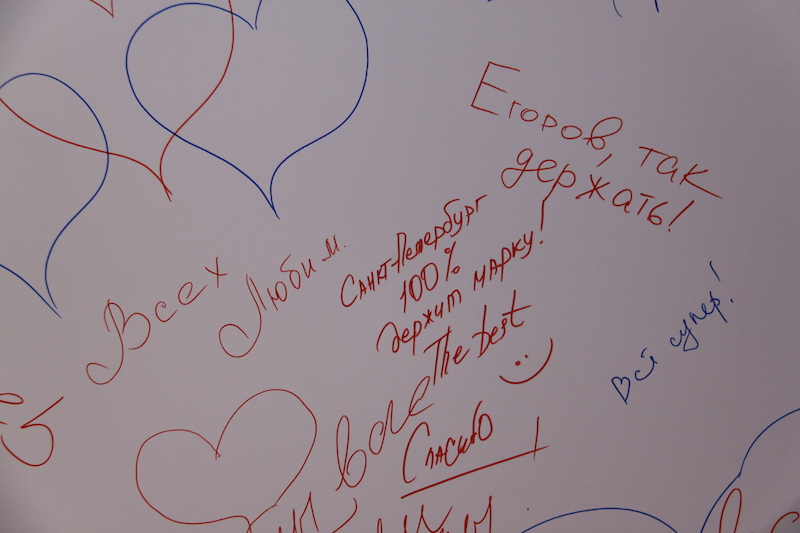 Егоров, так
держать!
Санкт-Петербург
100%
держит марку!
The best
Всех
Любим.
Всё супер!
Спасибо!